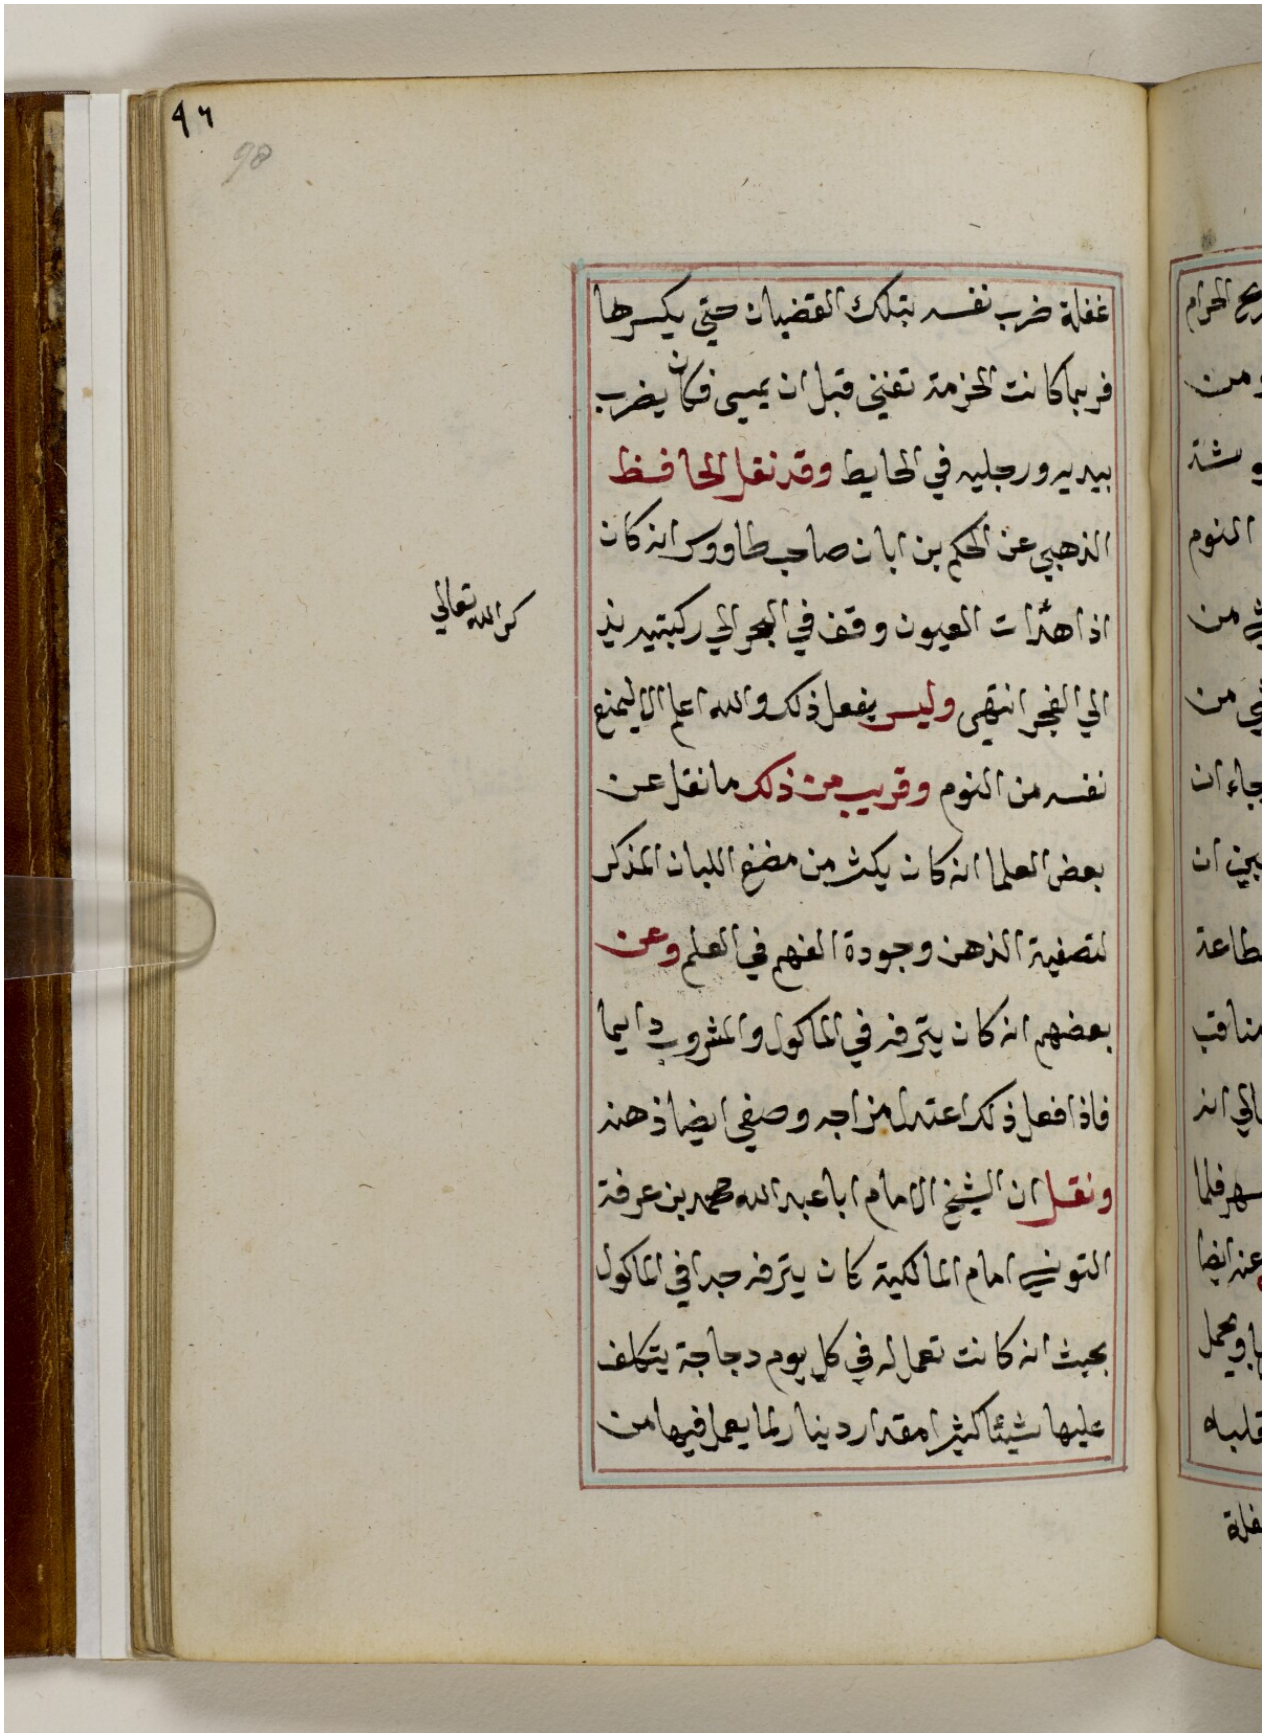 ٩٦
98
غفلة ضرب نفسه بتلك القضبان حتي يكسرها
فربما كانت الحزمة تفني قبل ان يمسي فكان يضرب
بيديه ورجليه في الحايط وقد نقل الحافظ
الذهبي عن الحكم بن ابان صاحب طاووس انه كان
اذا هدات العيون وقف في البحر الي ركبتيه يذ
كر الله تعالي
الي الفجر انتهي وليس يفعل ذلك والله اعلم الا ليمنع
نفسه من النوم وقريب من ذلك ما نقل عن
بعض العلما انه كان يكثر من مضغ اللبان المذكر
لتصفية الذهن وجودة الفهم في العلم وعن
بعضهم انه كان يترفه في الماكول والمشروب دايما
فاذا فعل ذلك اعتدل مزاجه وصفي ايضا ذهنه
ونقل ان الشيخ الامام ابا عبد الله محمد بن عرفة
التونسي امام المالكية كان يترفه جدا في الماكول
بحيث انه كانت تعمل له في كل يوم دجاجة يتكلف
عليها شيئا كثيرا مقدار دينار لما يعمل فيها من
الحرام
ومن
النوم
من
من
جاء ان
ان
مناقب
انه
فلما
عنه ايضا
ويحمل
قلبه